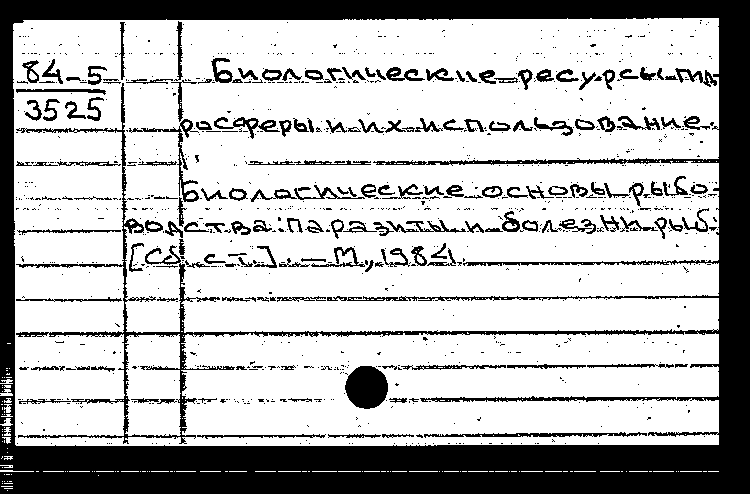 84-5
3525
Биологические ресурсы гид-
росферы и их использование.
Биологические основы рыбо-
водства: паразиты и болезни рыб:
[Сб. ст.]. — М., 1984.